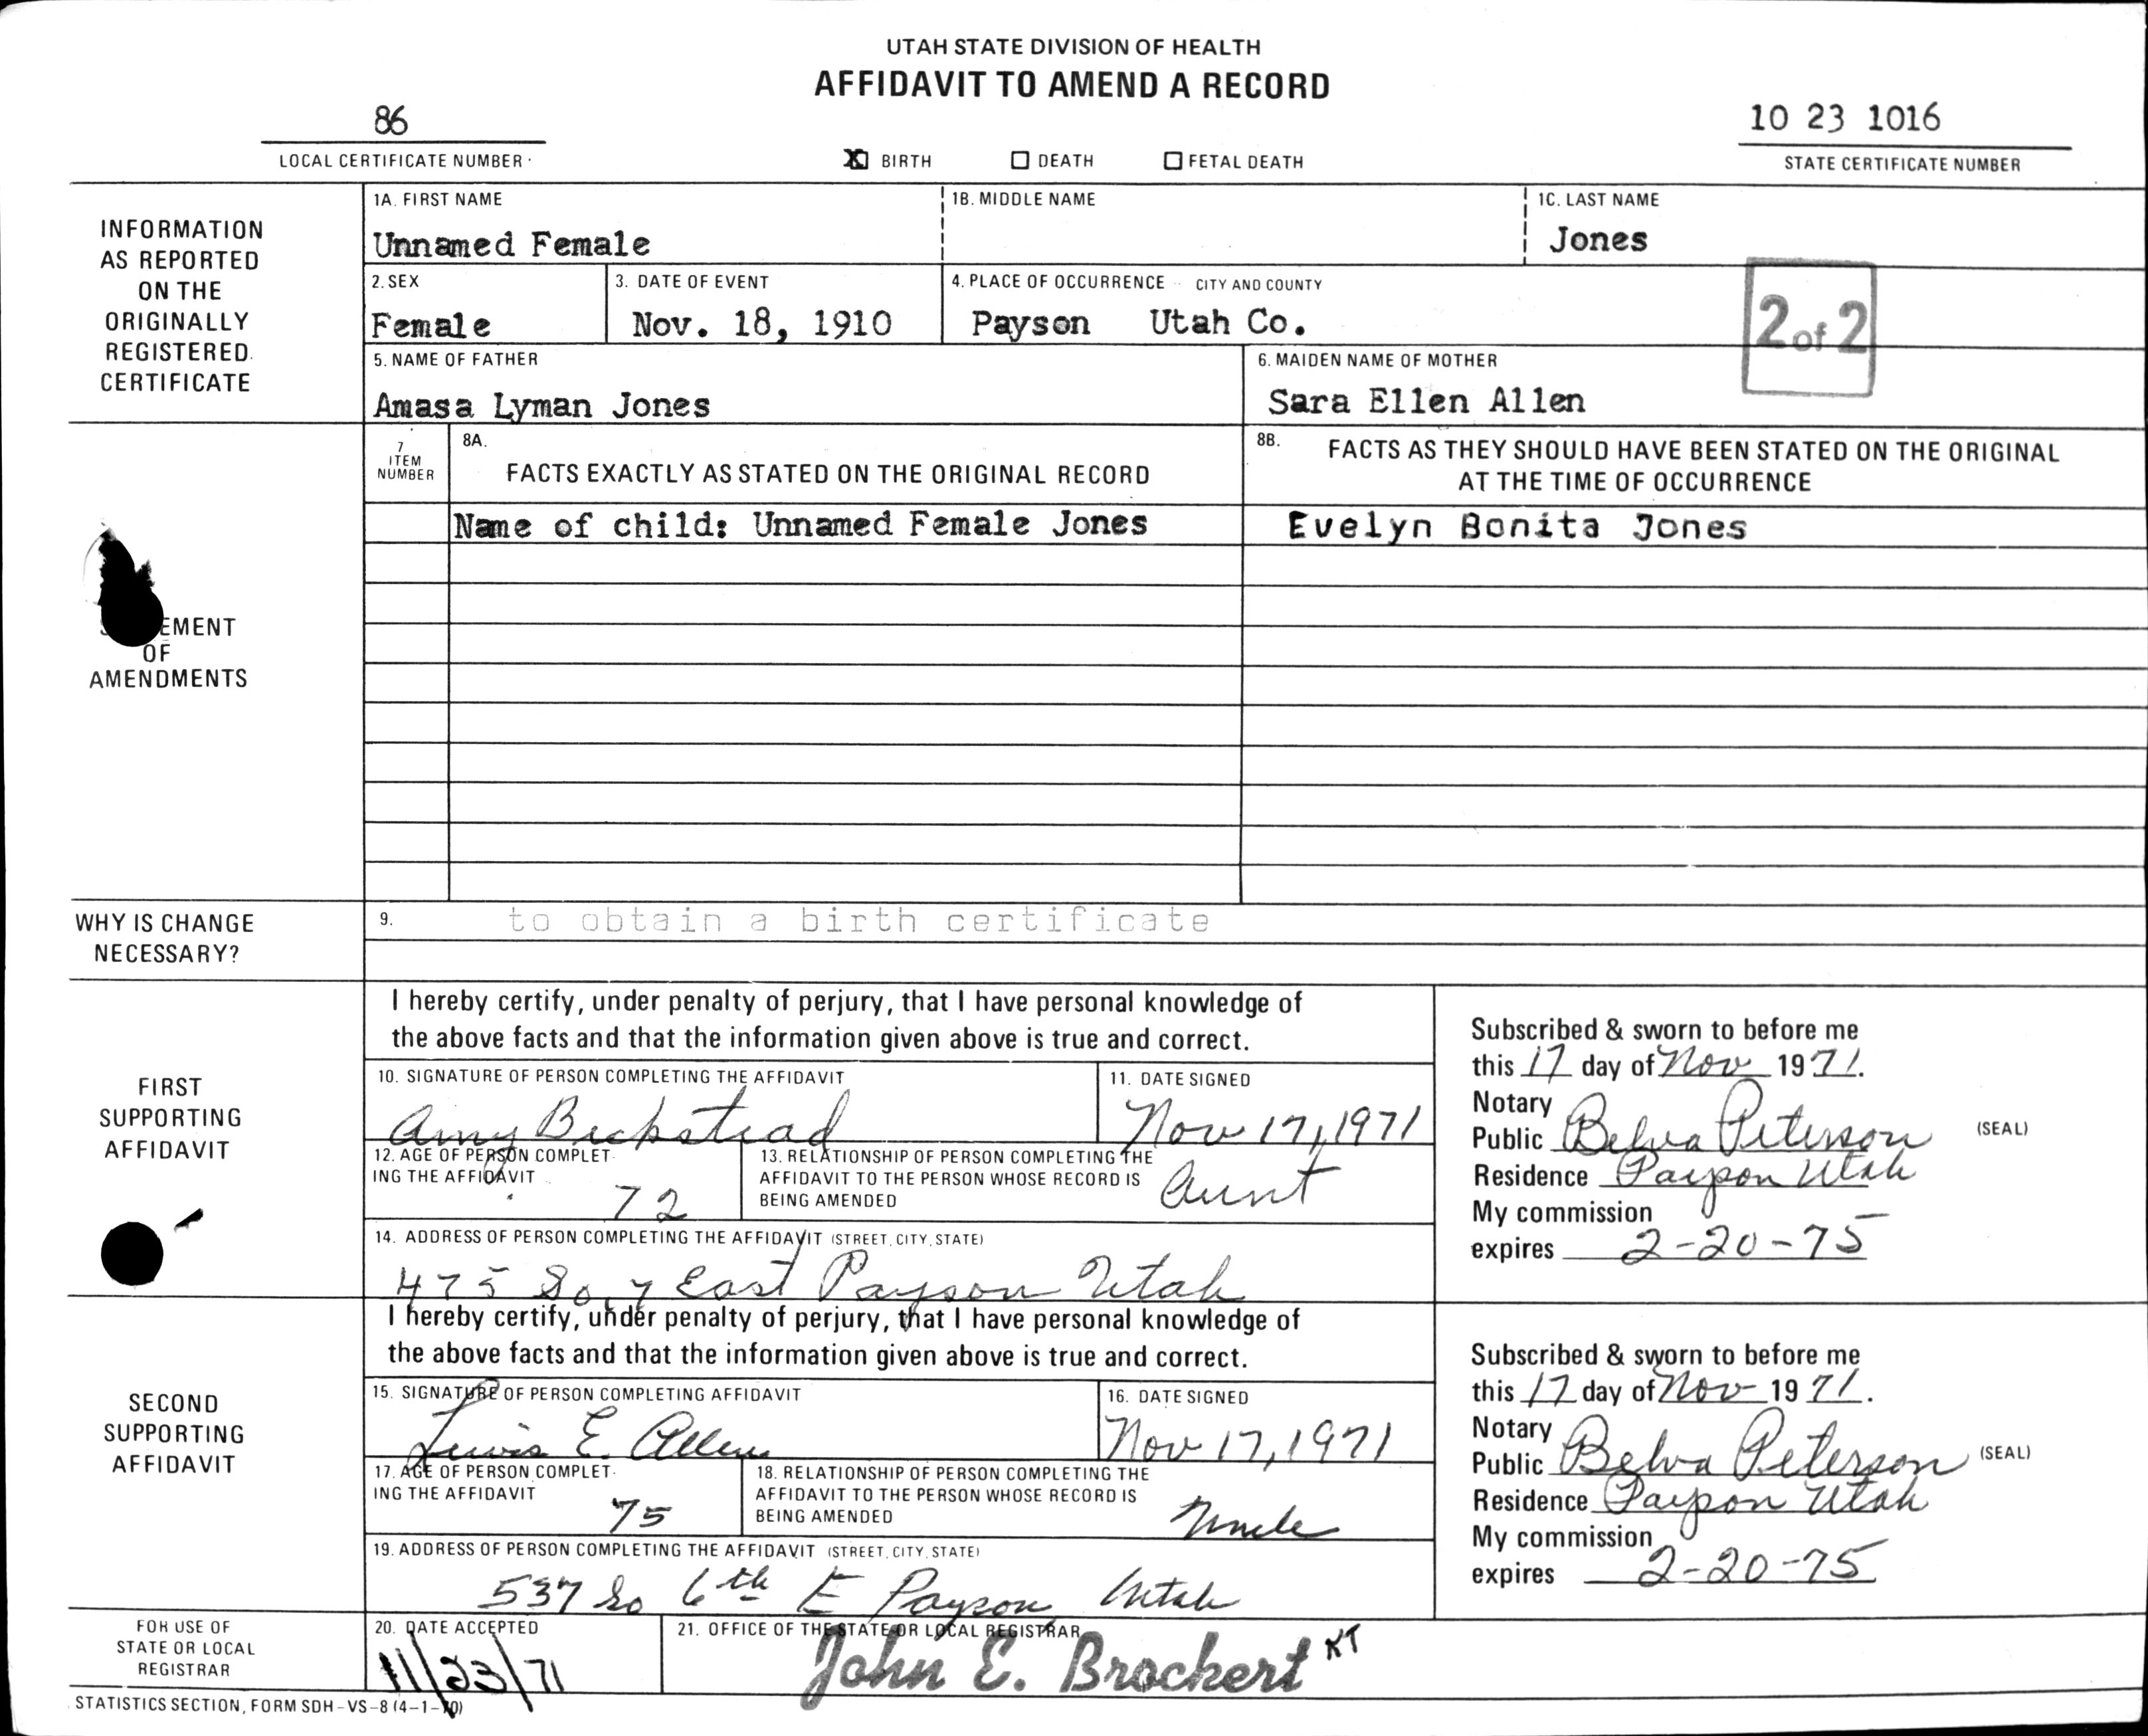 UTAH STATE DIVISION OF HEALTH
AFFIDAVIT TO AMEND A RECORD
86
LOCAL CERTIFICATE NUMBER
X BIRTH DEATH FETAL DEATH
10 23 1016
STATE CERTIFICATE NUMBER
INFORMATION
AS REPORTED
ON THE
ORIGINALLY
REGISTERED
CERTIFICATE
1A. FIRST NAME
Unnamed Female
1B. MIDDLE NAME
1C. LAST NAME
Jones
2. SEX
Female
3. DATE OF EVENT
Nov. 18, 1910
4. PLACE OF OCCURRENCE CITY AND COUNTY
Payson Utah Co.
2 of 2
5. NAME OF FATHER
Amasa Lyman Jones
6. MAIDEN NAME OF MOTHER
Sara Ellen Allen
EMENT
OF
AMENDMENTS
7
ITEM
NUMBER
8A.
FACTS EXACTLY AS STATED ON THE ORIGINAL RECORD
8B. FACTS AS THEY SHOULD HAVE BEEN STATED ON THE ORIGINAL
AT THE TIME OF OCCURRENCE
Name of child: Unnamed Female Jones
Evelyn Bonita Jones
WHY IS CHANGE
NECESSARY?
9. to obtain a birth certificate
FIRST
SUPPORTING
AFFIDAVIT
I hereby certify, under penalty of perjury, that I have personal knowledge of
the above facts and that the information given above is true and correct.
10. SIGNATURE OF PERSON COMPLETING THE AFFIDAVIT
Amy Beckstead
11. DATE SIGNED
Nov 17, 1971
12. AGE OF PERSON COMPLET-
ING THE AFFIDAVIT
72
13. RELATIONSHIP OF PERSON COMPLETING THE
AFFIDAVIT TO THE PERSON WHOSE RECORD IS
BEING AMENDED
Aunt
14. ADDRESS OF PERSON COMPLETING THE AFFIDAVIT (STREET, CITY, STATE)
475 So. 7 East Payson Utah
Subscribed & sworn to before me
this 17 day of Nov 1971.
Notary
Public Belva Peterson (SEAL)
Residence Payson Utah
My commission
expires 2-20-75
SECOND
SUPPORTING
AFFIDAVIT
I hereby certify, under penalty of perjury, that I have personal knowledge of
the above facts and that the information given above is true and correct.
15. SIGNATURE OF PERSON COMPLETING AFFIDAVIT
Lewis E. Allen
16. DATE SIGNED
Nov 17, 1971
17. AGE OF PERSON COMPLET-
ING THE AFFIDAVIT
75
18. RELATIONSHIP OF PERSON COMPLETING THE
AFFIDAVIT TO THE PERSON WHOSE RECORD IS
BEING AMENDED
Uncle
19. ADDRESS OF PERSON COMPLETING THE AFFIDAVIT (STREET, CITY, STATE)
537 So 6th E Payson, Utah
Subscribed & sworn to before me
this 17 day of Nov 1971.
Notary
Public Belva Peterson (SEAL)
Residence Payson Utah
My commission
expires 2-20-75
FOR USE OF
STATE OR LOCAL
REGISTRAR
20. DATE ACCEPTED
11/23/71
21. OFFICE OF THE STATE OR LOCAL REGISTRAR
John E. Brockert KT
STATISTICS SECTION, FORM SDH-VS-8 (4-1-70)